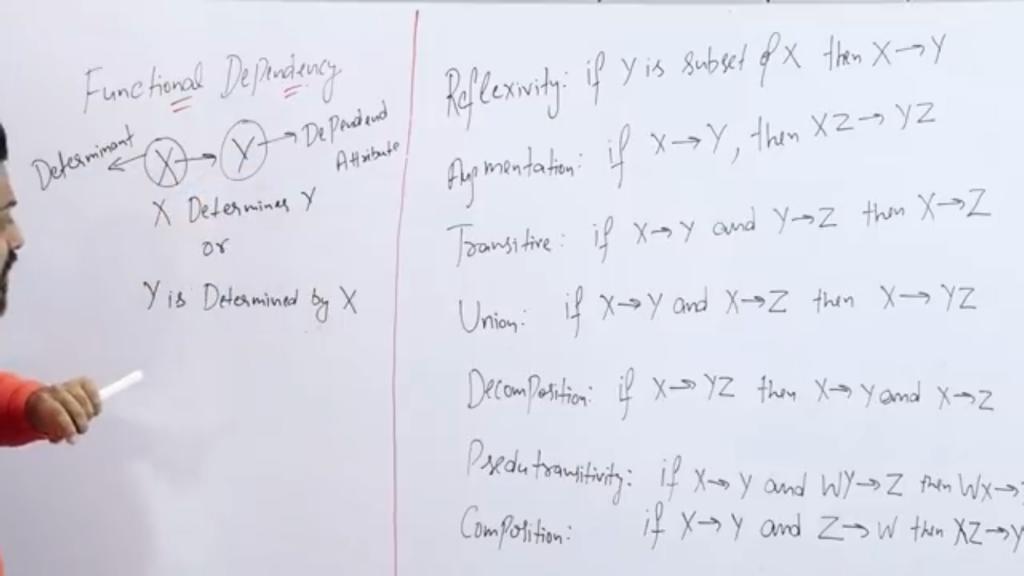 Functional Dependency
Determinant
X → Y
Dependend
Attribute
X Determines Y
or
Y is Determined by X
Reflexivity: if Y is subset of X then X→Y
Augmentation: if X→Y, then XZ→YZ
Transitive: if X→Y and Y→Z then X→Z
Union: if X→Y and X→Z then X→YZ
Decomposition: if X→YZ then X→Y and X→Z
Psedutransitivity: if X→Y and WY→Z then WX→
Composition: if X→Y and Z→W then XZ→Y